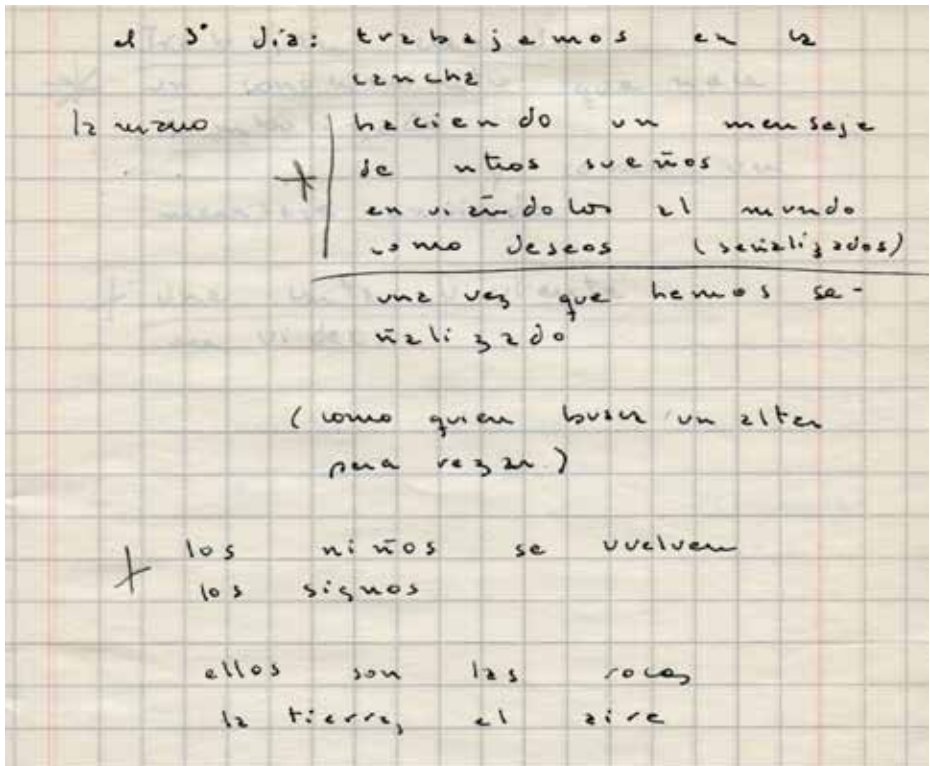 el 3° día: trabajamos en la
cancha
la mano
haciendo un mensaje
de ntros sueños
enviándolos al mundo
como deseos (señalizados)
una vez que hemos se-
ñalizado
(como quien busca un altar
para rezar)
los niños se vuelven
los signos
ellos son las rocas,
la tierra, el aire